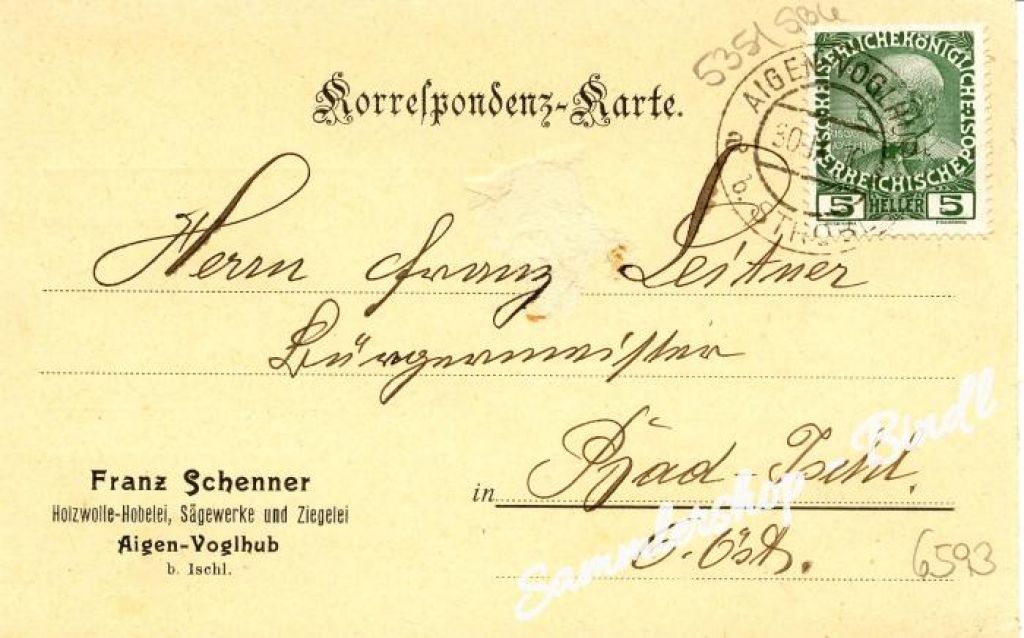 5351 SBG
Korrespondenz-Karte.
AIGEN-VOGLHUB
a
b. STROBL
KAISERLICHE KÖNIGLICHE
ÖSTERREICHISCHE POST
5 HELLER 5
Herrn Franz Leitner
Bürgermeister
in Bad Ischl.
O. Öst.
Franz Schenner
Holzwolle-Hobelei, Sägewerke und Ziegelei
Aigen-Voglhub
b. Ischl.
6593
Sammlershop-Bindl